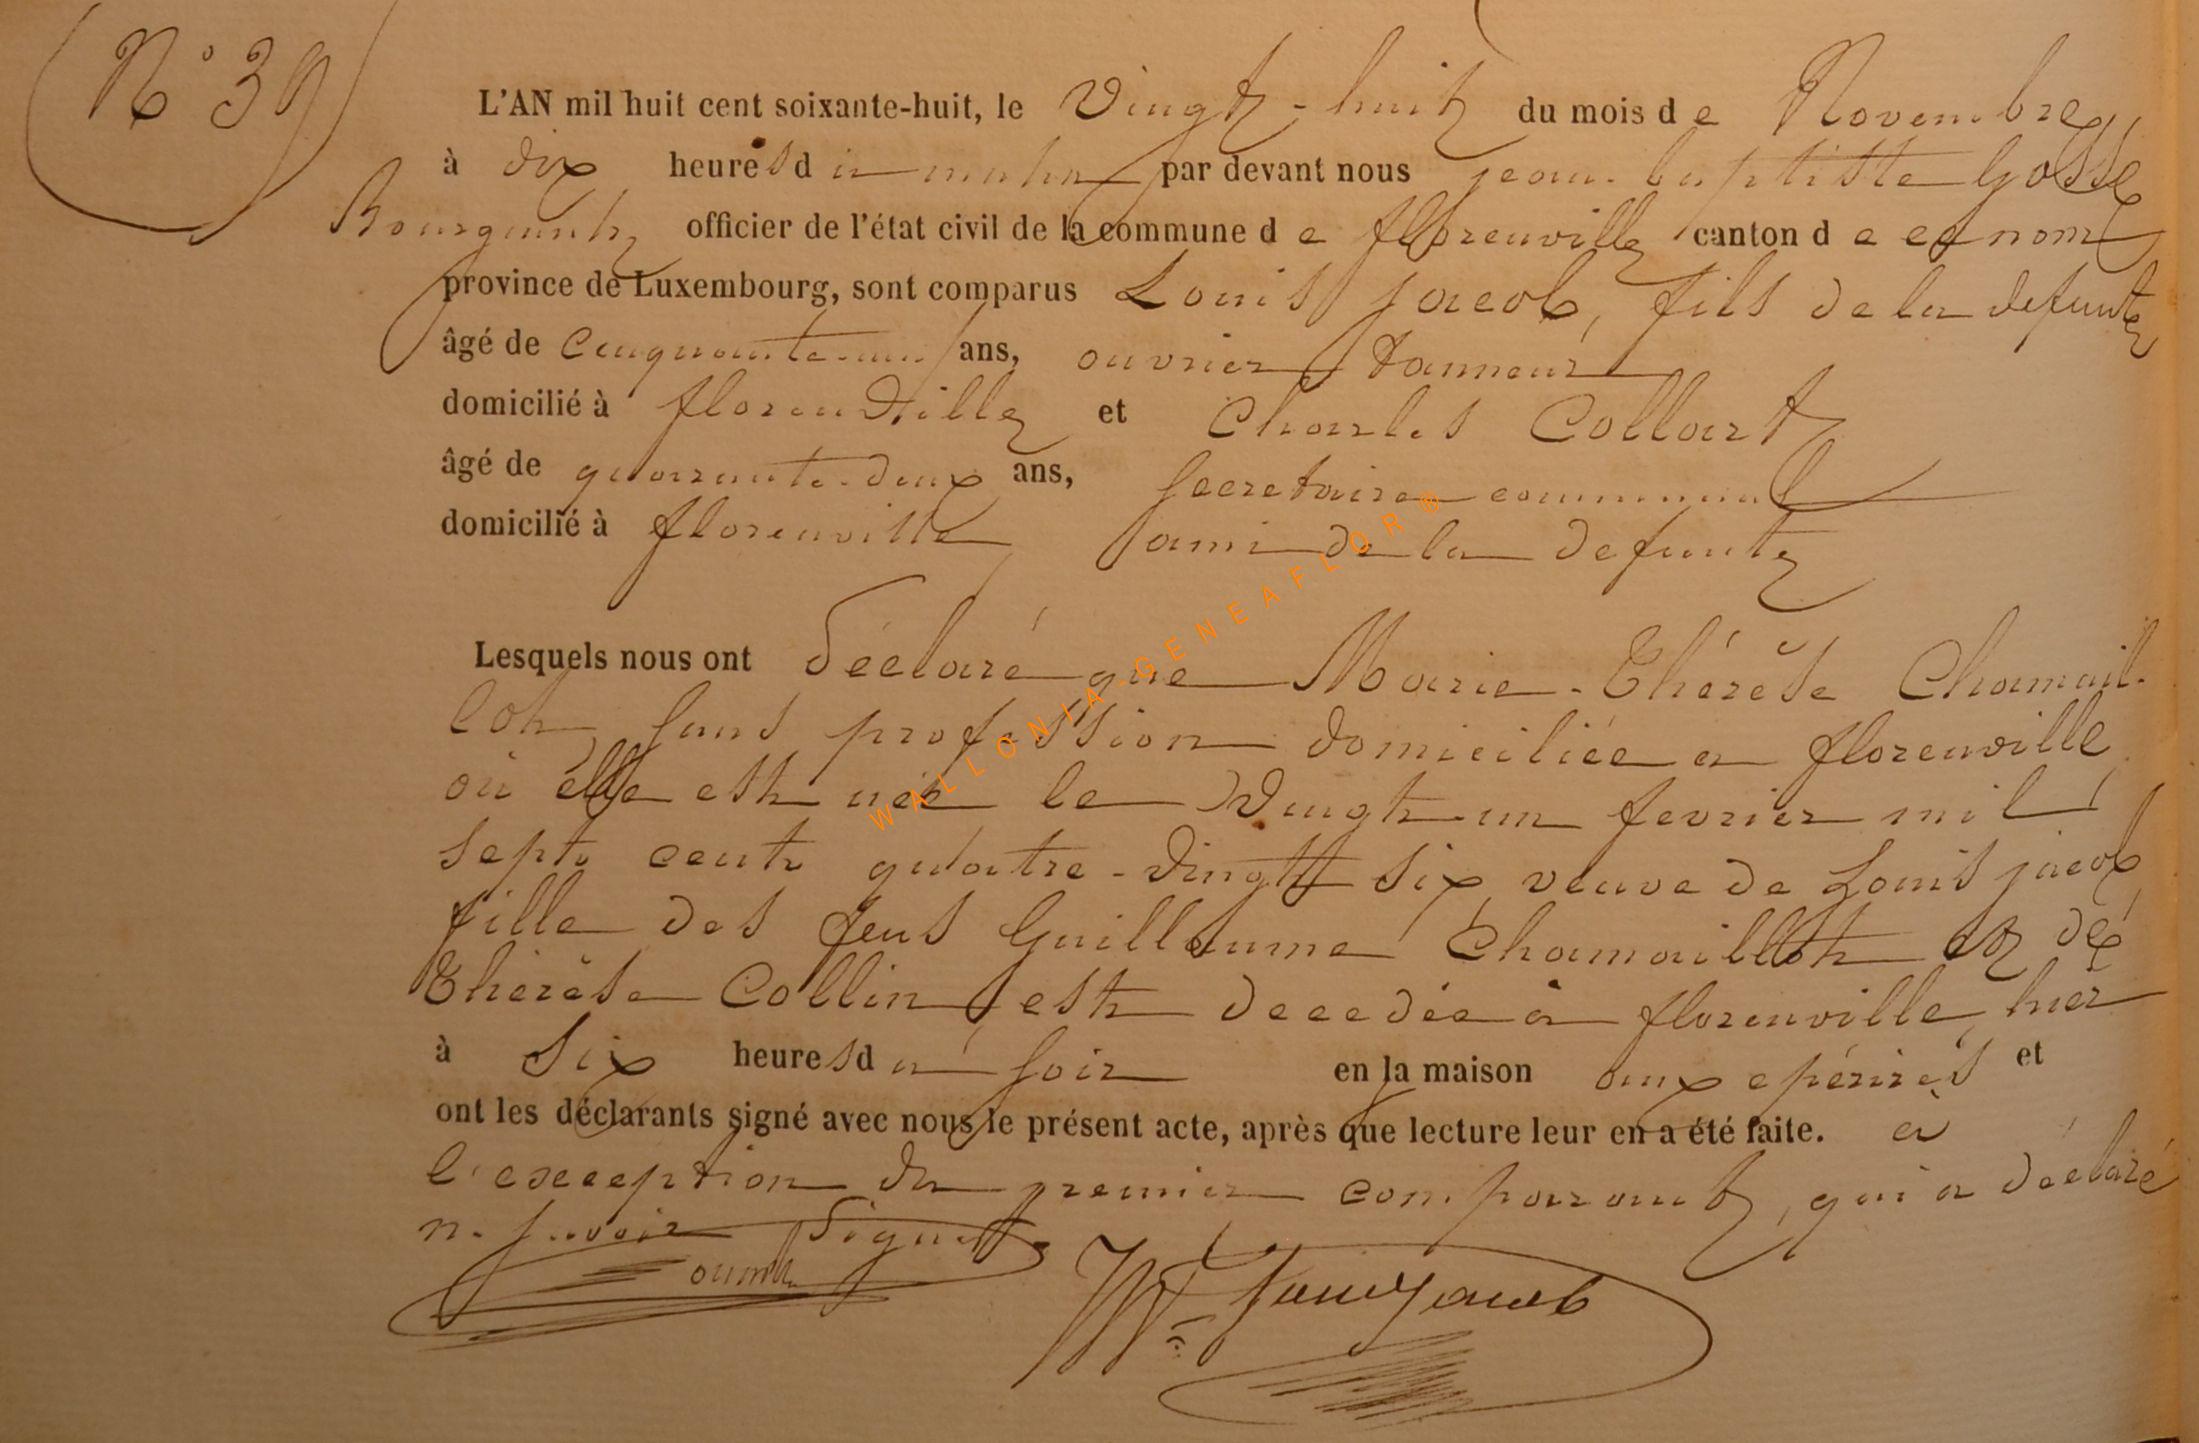 N° 39
L'AN mil huit cent soixante-huit, le Vingt-huit du mois de Novembre
à dix heures du matin par devant nous jean-baptiste Gosse
officier de l'état civil de la commune de florenville canton de ce nom
province de Luxembourg, sont comparus Louis jacob, fils de la defunte
âgé de cinquante-un ans, ouvrier tanneur
domicilié à florenville et Charles Collart
âgé de quarante-deux ans, secretaire communal
domicilié à florenville ami de la defunte
Lesquels nous ont déclaré que Marie-Thérèse Chamail-
lot sans profession domiciliée a florenville
où elle est née le Vingt-un fevrier mil
sept cent quatre-vingt six, veuve de Louis jacob
fille des feus Guillaume Chamaillot et de
Thérèse Collin est decedée à florenville, hier
à six heures du soir en la maison aux epérires et
ont les déclarants signé avec nous le présent acte, après que lecture leur en a été faite. à
l'exception du premier comparant, qui a déclaré
ne savoir signer
WALLONIA-GENEAFLOR®